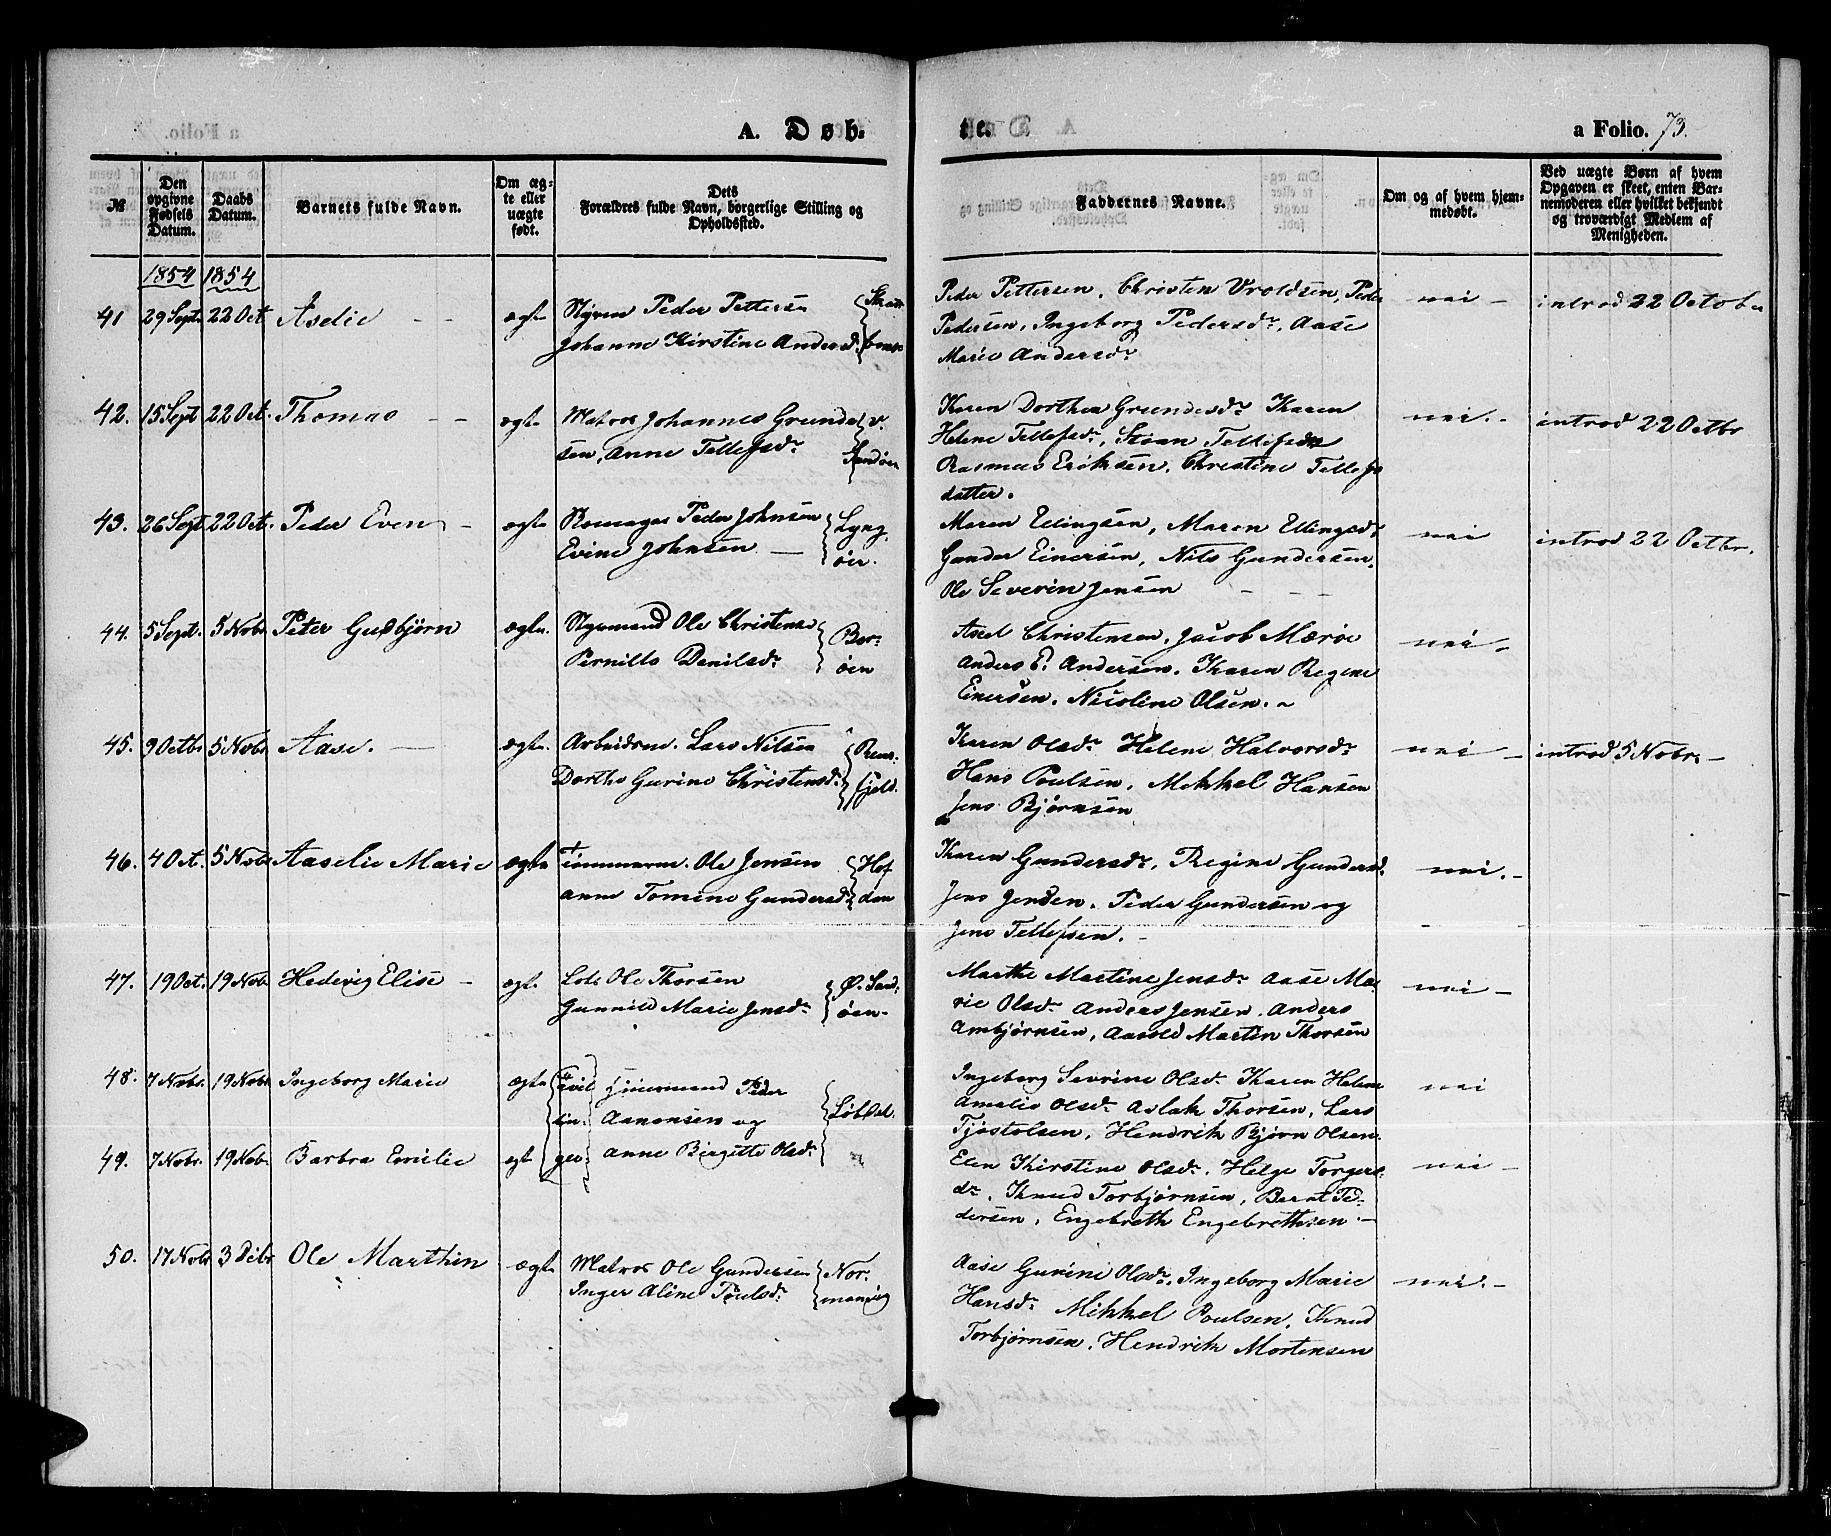 A. Døb-
te.
a Folio. 73.
№
Den opgivne Fødsels Datum.
Daabs Datum.
Barnets fulde Navn.
Om ægte eller uægte født.
Dets Forældres fulde Navn, borgerlige Stilling og Opholdssted.
Faddernes Navne.
Om og af hvem hjemmedøbt.
Ved uægte Børn af hvem Opgaven er skeet, enten Barnemoderen eller hvilket bekjendt og troværdigt Medlem af Menigheden.
1854 1854
41 29 Sept. 22 Oct Aselie — — ægte Styrm Peder Pettersen
Johanne Kirstine Andersd.
Peder Pettersen, Christen Vroldsen, Peder
Pedersen, Ingeborg Pedersdr, Aase
Marie Andersdr
nei — introd 22 Octob
42. 15 Sept 22 Oct. Thomas — — ægte Matros Johannes Grunde
sen, Anne Tellefsdr
v. Sandøen
Karen Dorthea Grundesdr Karen
Helene Tellefsdr, Stian Tellefsen
Rasmus Eriksen, Christine Tellefs
datter.
nei. — introd 22 Octbr
43. 26 Sept. 22 Oct. Peder Even — ægte Peder Johnsen
Evine Johnsen —
Lyng
øer.
Maren Ellingsen, Maren Ellingsdr
Gunder Einersen, Nils Gundersen,
Ole Severin Jensen — — —
nei introd 22 Octbr.
44. 5 Sept. 5 Nobr Peter Gudbjørn ægte. Styrmand Ole Christensen
Pernille Danilsdr
Bor-
øen
Axel Christensen, Jacob Mærøe
Anders E. Andersen. Karen Regine
Einersen. Nicoline Olsen. ~
nei —
45. 9 Octbr 5 Nobr Aase. — ægte. Arbeidsm. Lars Nilsen
Dorthe Gurine Christensdr
Karen Olsdr Helene Halvorsdr
Hans Poulsen, Mekkel Hansen
Jens Bjørnsen
nei — introd 5 Nobr. —
46. 4 Oct. 5 Nobr Aaselie Marie ægte Tømmerm. Ole Jensen
Anne Tomine Gundersd.
Hof
den
Karen Gundersdr, Regine Gundersd.
Jens Jensen, Peder Gundersen og
Jens Tellefsen. —
nei. —
47. 19 Oct. 19 Nob. Hedevig Elise — ægte Lods Ole Thorsen
Gunnild Marie Jensdr
Ø. Sand-
øen —
Marthe Martine Jensdr Aase Ma-
rie Olsdr Anders Jensen. Anders
Ambjørnsen, Aarold Martin Thorsen
nei —
48. 7 Nobr. 19 Nobr Ingeborg Marie ægte Tvil
lin-
ger
Peder
Aanonsen og
Anne Birgitte Olsdr
Løbdal.
Ingeborg Sevrine Olsdr Karen Helene
Amalie Olsdr Aslak Thorsen, Lars
Tjøstolsen, Hendrik Bjørn Olsen.
nei
49. 7 Nobr. 19 Nob. Barbra Emilie ægt
Elen Kirstine Olsdr. Helge Torgers
dr. Knud Torbjørnsen, Bernt Pe-
dersen, Engebreth Engebrethsen. —
nei —
50. 17 Nobr 3 Debr Ole Marthin ægte Matros Ole Gundersen
Inger Aline Poulsdr
Nor-
mandvig
Aase Gurine Olsdr, Ingeborg Marie
Hansdr Mikkel Poulsen, Knud
Torbjørnsen, Hendrik Mortensen
nei. —